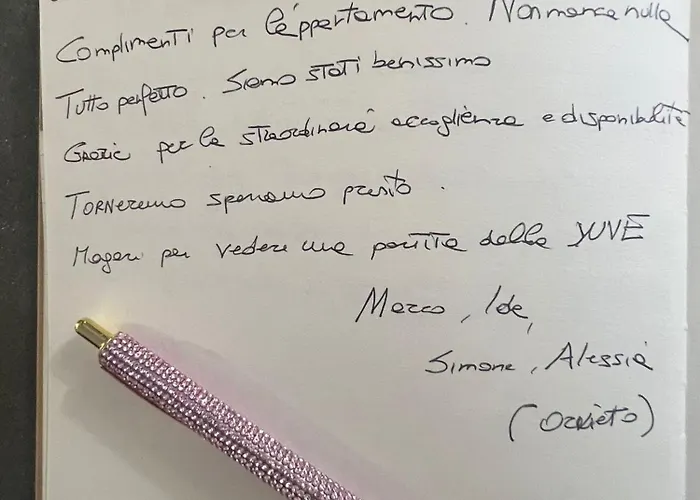 Complimenti per l'appartamento. Non manca nulla
Tutto perfetto. Siamo stati benissimo
Grazie per la straordinaria accoglienza e disponibilità
Torneremo speriamo presto.
Magari per vedere una partita della JUVE
Marco, Ida,
Simone, Alessia
(Orvieto)